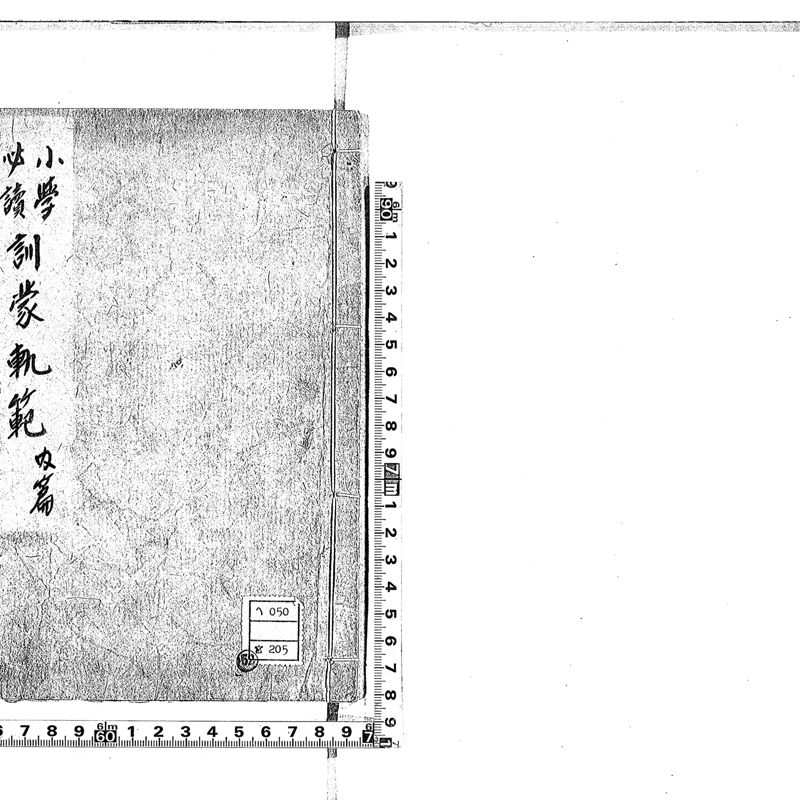 小學
必讀
訓蒙軌範
内篇
ヘ 050
205
52
6m 90 1 2 3 4 5 6 7 8 9 7m 1 2 3 4 5 6 7 8 9
6 7 8 9 6m 60 1 2 3 4 5 6 7 8 9 7